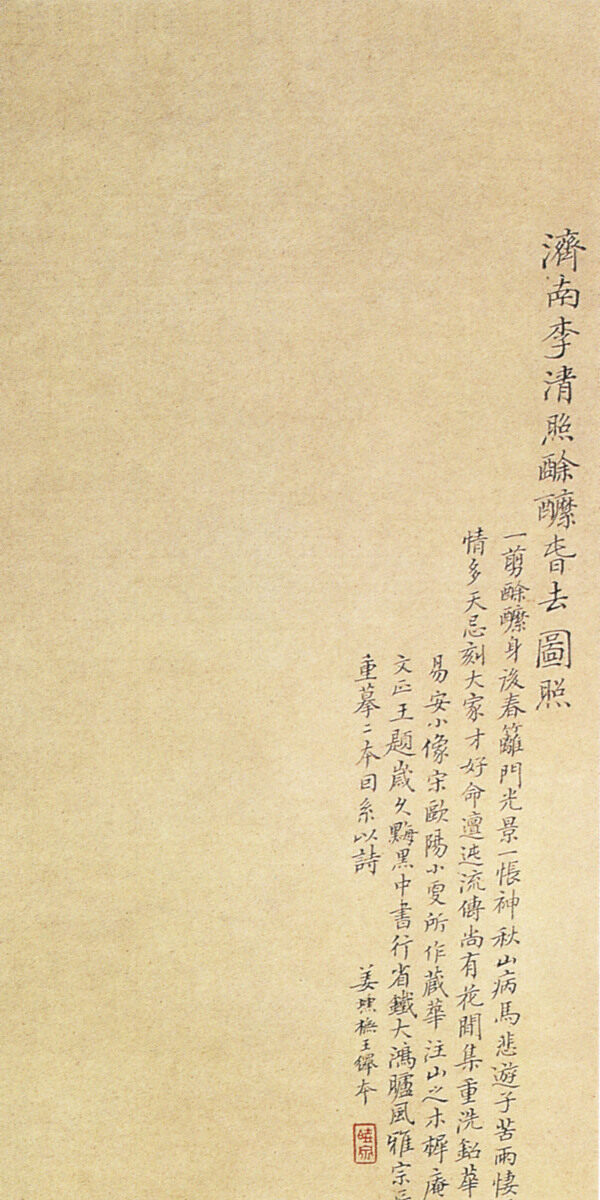 濟南李清照酴醿旾去圖照
一剪酴醿身後春籬門光景一悵神秋山病馬悲遊子苦雨悽
情多天忌刻大家才好命邅迍流傳尚有花間集重洗鉛華
易安小像宋歐陽小叟所作藏華注山之木樨庵
文正王題嵗久黣黑中書行省鐵大鴻臚風雅宗
重摹二本囙系以詩
姜壎橅王繹本